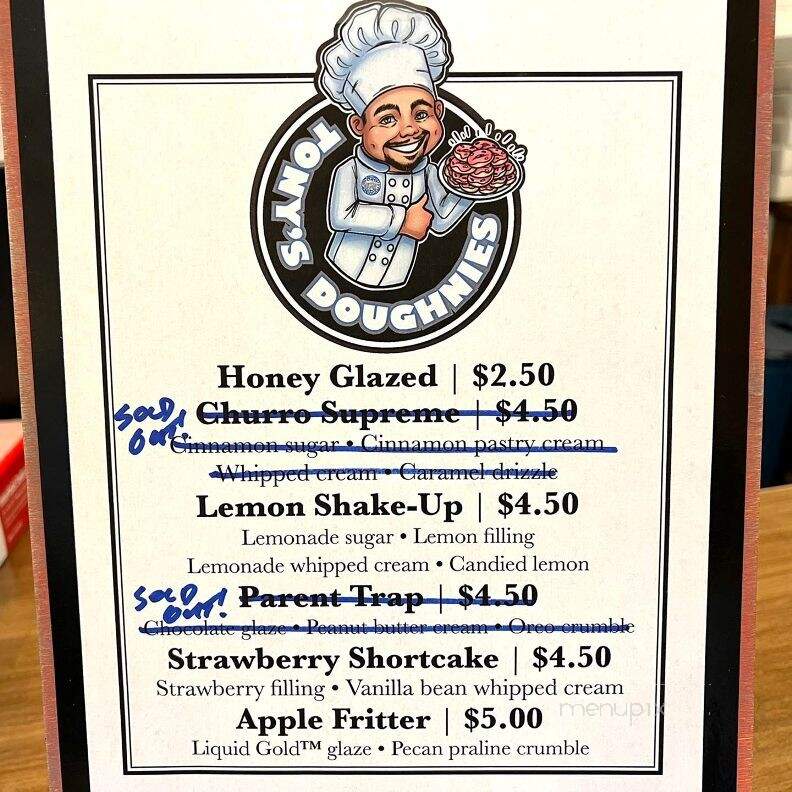 TONY'S DOUGHNIES
Honey Glazed | $2.50
SOLD OUT! Churro Supreme | $4.50
Cinnamon sugar • Cinnamon pastry cream
Whipped cream • Caramel drizzle
Lemon Shake-Up | $4.50
Lemonade sugar • Lemon filling
Lemonade whipped cream • Candied lemon
SOLD OUT! Parent Trap | $4.50
Chocolate glaze • Peanut butter cream • Oreo crumble
Strawberry Shortcake | $4.50
Strawberry filling • Vanilla bean whipped cream
Apple Fritter | $5.00
Liquid Gold™ glaze • Pecan praline crumble